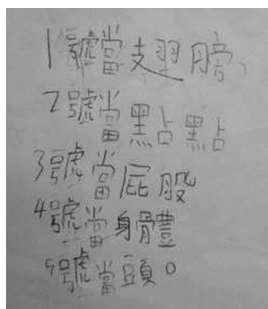 1號當翅膀、
2號當黑占黑占
3號當屁股
4號當身體
5號當頭。